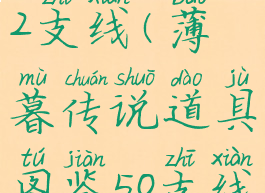 2支线(薄
mù chuán shuō dào jù
暮传说道具
tú jiàn zhī xiàn
图鉴50支线